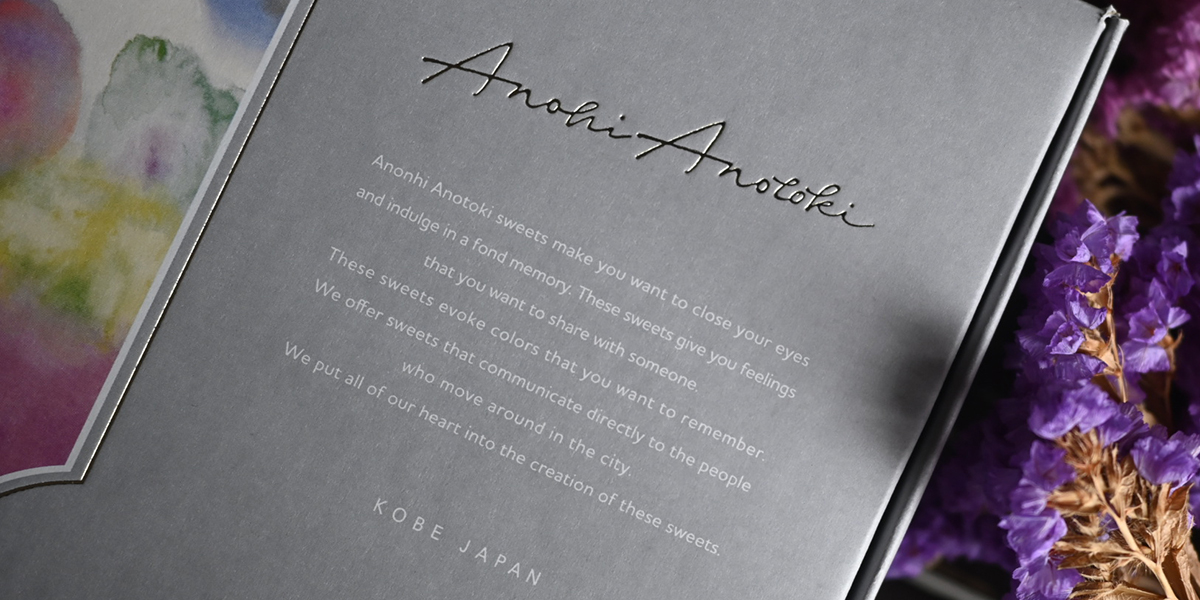 Anohi Anotoki
Anonhi Anotoki sweets make you want to close your eyes
and indulge in a fond memory. These sweets give you feelings
that you want to share with someone.
These sweets evoke colors that you want to remember.
We offer sweets that communicate directly to the people
who move around in the city.
We put all of our heart into the creation of these sweets.
KOBE JAPAN